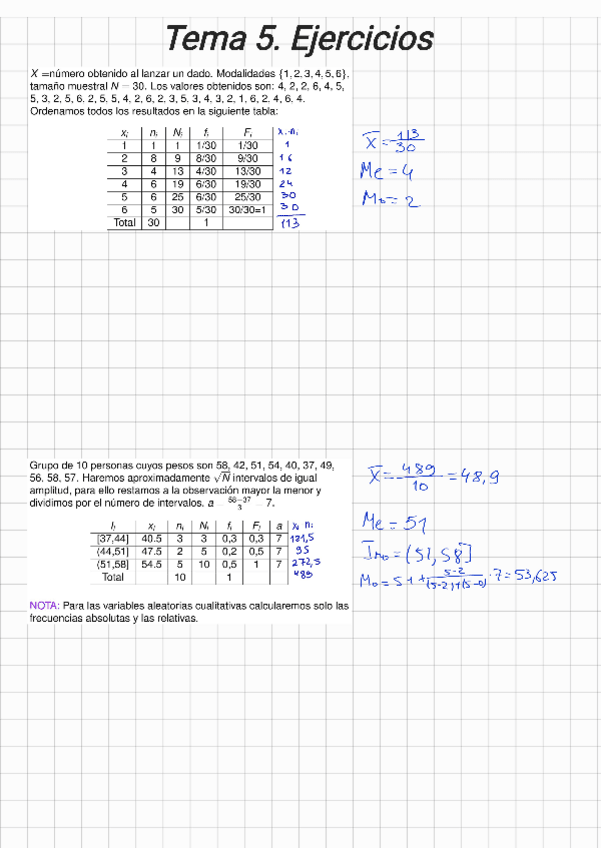 Tema 5. Ejercicios
X =número obtenido al lanzar un dado. Modalidades {1, 2, 3, 4, 5, 6},
tamaño muestral N = 30. Los valores obtenidos son: 4, 2, 2, 6, 4, 5,
5, 3, 2, 5, 6, 2, 5, 5, 4, 2, 6, 2, 3, 5, 3, 4, 3, 2, 1, 6, 2, 4, 6, 4.
Ordenamos todos los resultados en la siguiente tabla:
xᵢ nᵢ Nᵢ fᵢ Fᵢ xᵢ·nᵢ
1 1 1 1/30 1/30 1
2 8 9 8/30 9/30 16
3 4 13 4/30 13/30 12
4 6 19 6/30 19/30 24
5 6 25 6/30 25/30 30
6 5 30 5/30 30/30=1 30
Total 30 1 113
X̄ = 113/30
Me = 4
Mo = 2
Grupo de 10 personas cuyos pesos son 58, 42, 51, 54, 40, 37, 49,
56, 58, 57. Haremos aproximadamente √N intervalos de igual
amplitud, para ello restamos a la observación mayor la menor y
dividimos por el número de intervalos. a = 58−37/3 = 7.
Iᵢ xᵢ nᵢ Nᵢ fᵢ Fᵢ a xᵢ nᵢ
[37,44] 40.5 3 3 0,3 0,3 7 121,5
(44,51] 47.5 2 5 0,2 0,5 7 95
(51,58] 54.5 5 10 0,5 1 7 272,5
Total 10 1 489
X̄ = 489/10 = 48,9
Me = 51
Imo = (51, 58]
Mo = 51 + 5-2/(5-2)+(5-0) · 7 = 53,625
NOTA: Para las variables aleatorias cualitativas calcularemos solo las
frecuencias absolutas y las relativas.